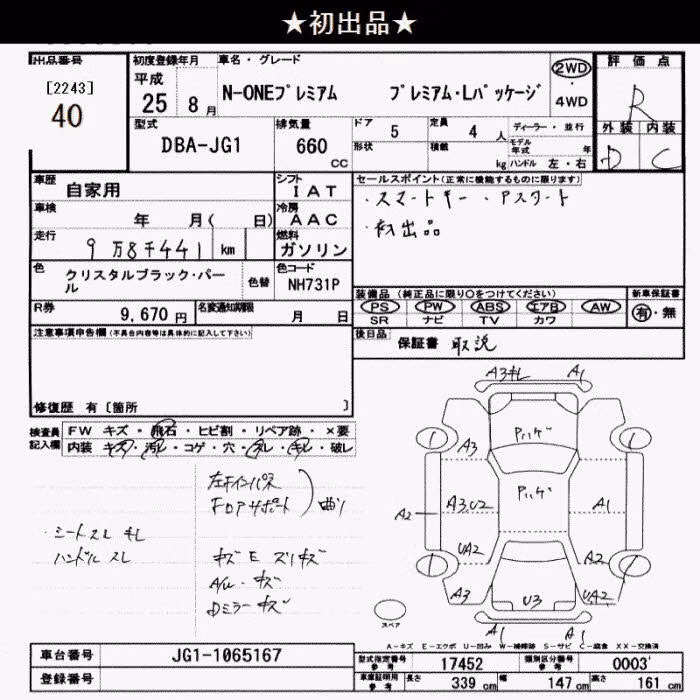 ★初出品★
出品番号
[2243]
40
初度登録年月
平成
25 8月
車名・グレード
N-ONEプレミアム プレミアム・Lパッケージ
2WD
・
4WD
評価点
R
外装 内装
D C
型式
DBA-JG1
排気量
660
CC
ドア 5
定員 4 人
ディーラー・並行
形状
積載 kg
モデル年式 年
ハンドル 左・右
車歴
自家用
シフト
I A T
車検
年 月( 日)
冷房
A A C
走行
9万8千441 km
燃料
ガソリン
色
クリスタルブラック・パール
色替
色コード
NH731P
R券
9,670 円
名変通知期限
月 日
セールスポイント(正常に機能するものに限ります)
・スマートキー・アスタート
・初出品
装備品 (純正品に限り○をつけてください)
PS PW ABS エアB AW
SR ナビ TV カワ
新車保証書
有・無
後日品
保証書 取説
注意事項申告欄(不具合内容等は具体的に記入して下さい)
修復歴 有〔箇所 〕
検査員
記入欄
FW キズ・飛石・ヒビ割・リペア跡・×要
内装 キズ・汚レ・コゲ・穴・スレ・キレ・破レ
左Fインパネ
FDアサポート
曲り
・シートスレ キレ
ハンドル スレ
キズ E ズリキズ
A/W・キズ
Dミラーキズ
A3キレ A1
A3
Pハゲ
A3,U2
Pハゲ
A1
A2
UA2
A2
A3
U3
UA2
A1 A1
スペア
A-キズ E-エクボ U-凹み W-補修跡 S-サビ C-腐食 XX-交換済
車台番号
JG1-1065167
登録番号
型式指定番号
参考
17452
類別区分番号
参考
0003
車庫証明用
参考
長さ 339 cm
幅 147 cm
高さ 161 cm